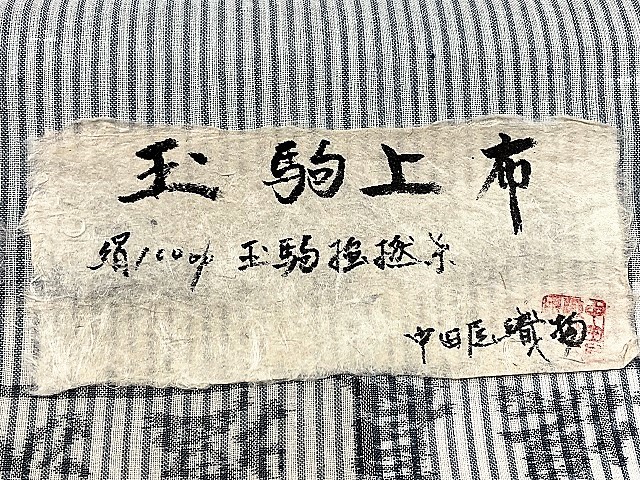 玉駒上布
絹100% 玉駒強撚糸
中田氏織物